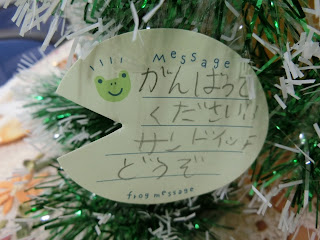 Message
がんばって
ください!
サンドイッチ
どうぞ
frog message